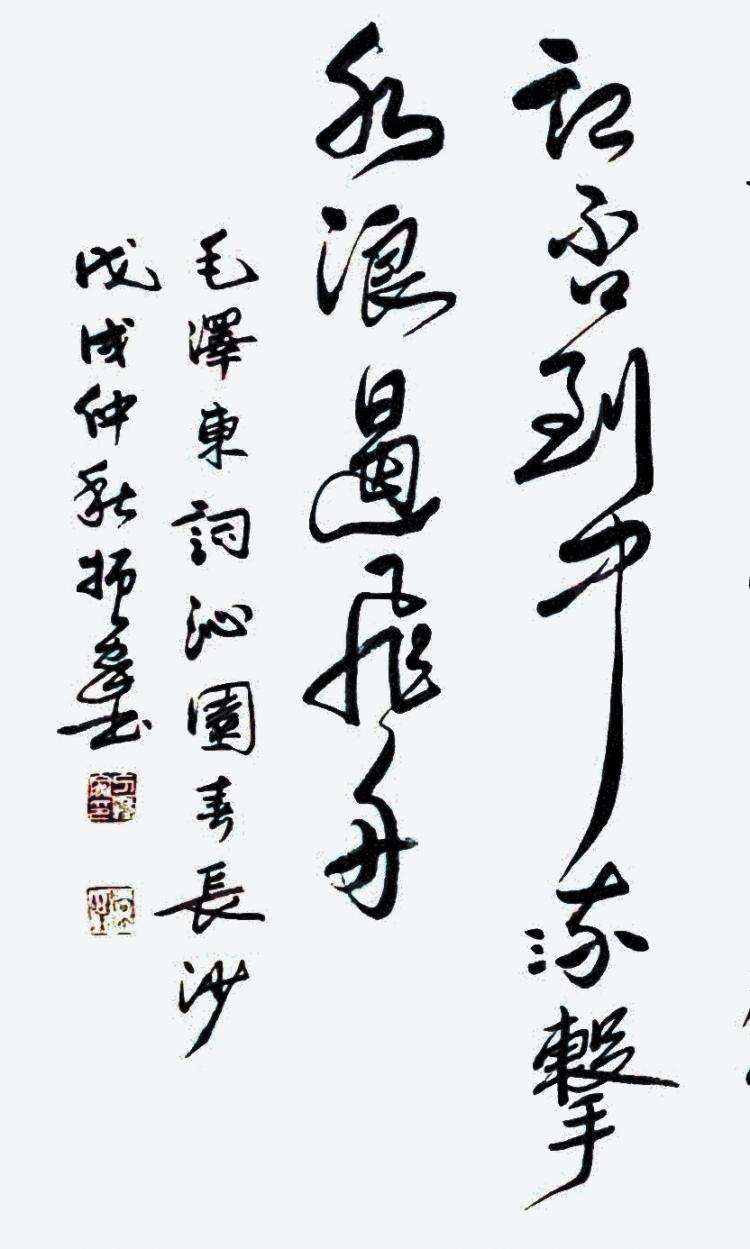 記否到中流擊
水浪遏飛舟
毛澤東詞沁園春長沙
戊戌仲秋振書